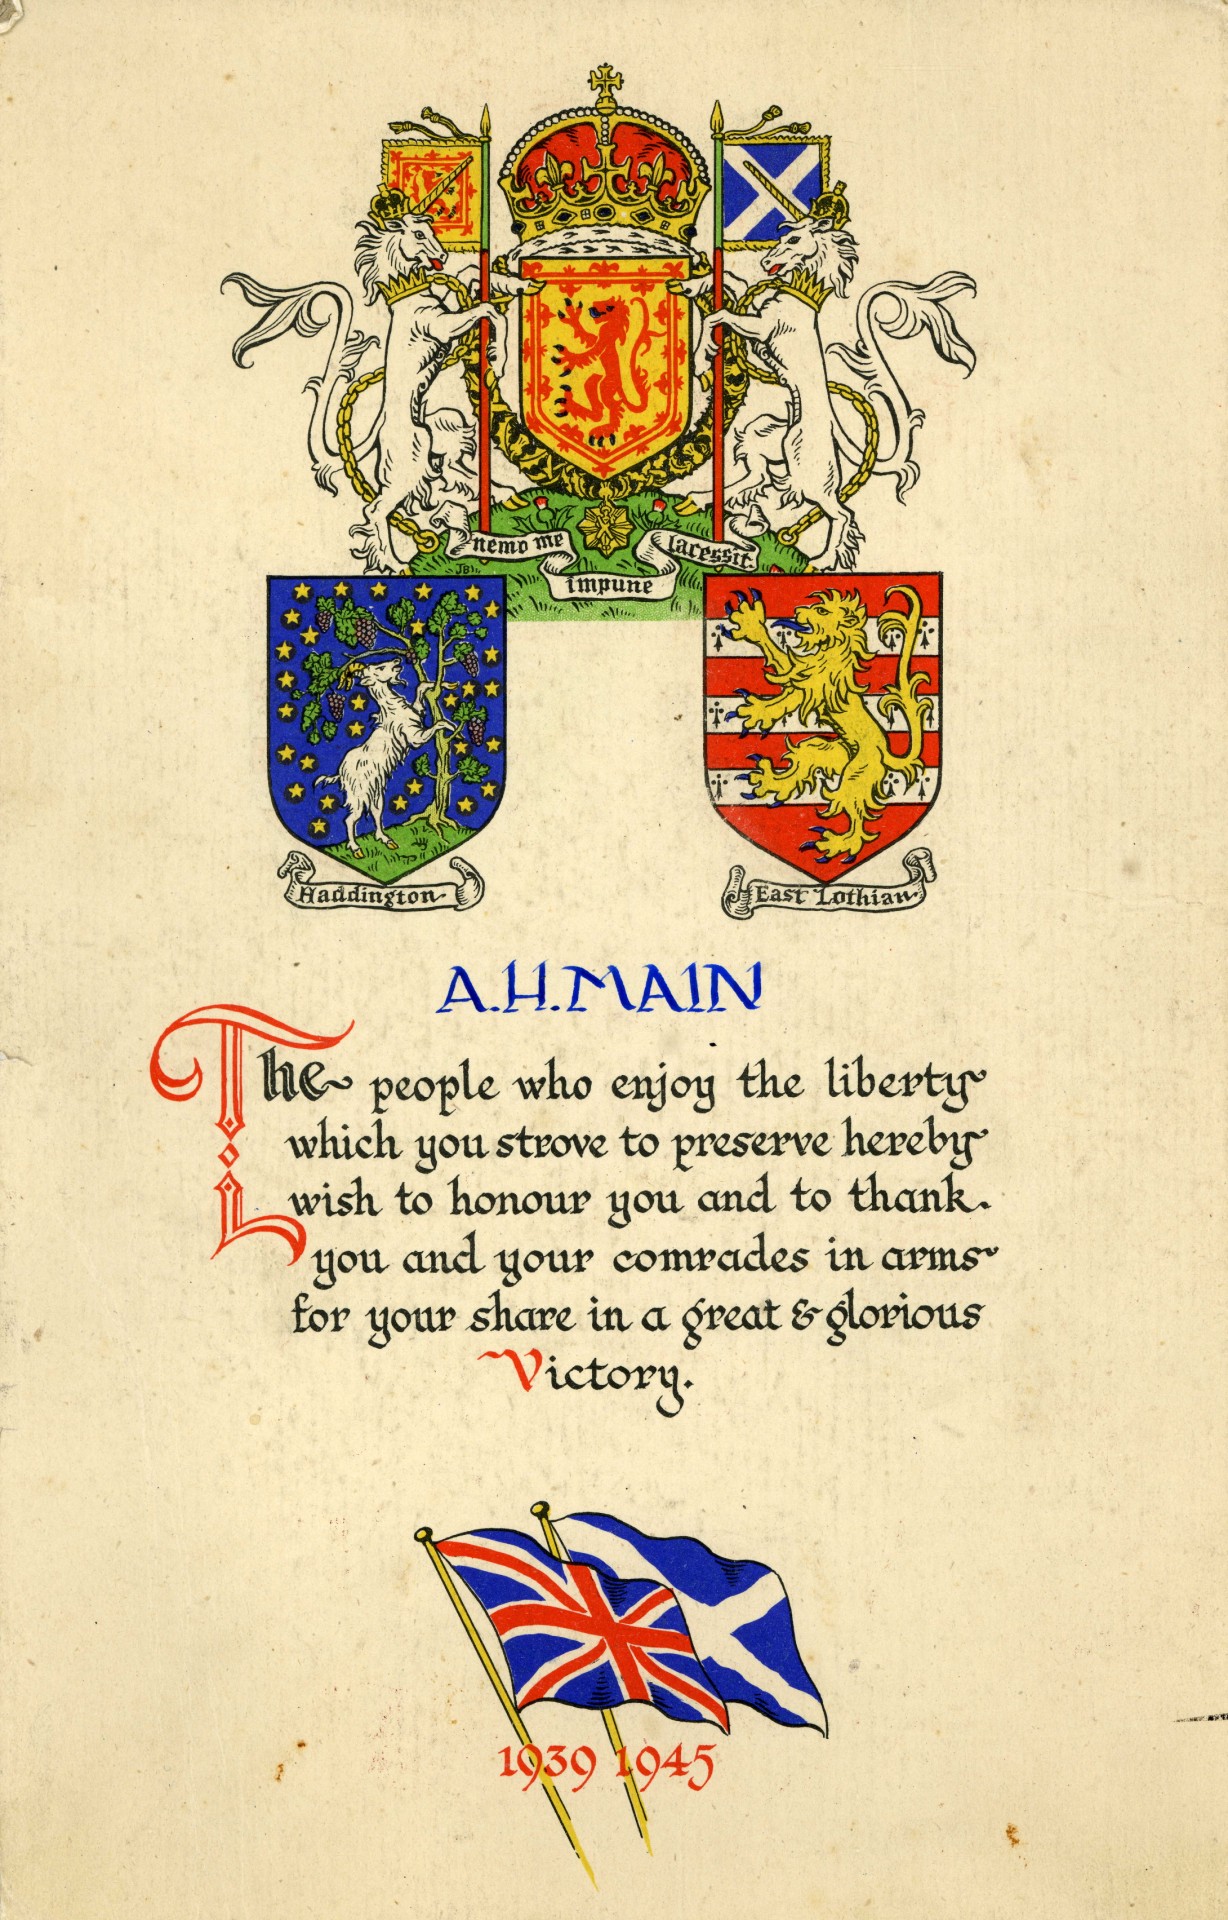 nemo me
impune
lacessit.
JB
Haddington
East Lothian
A.H.MAIN
The people who enjoy the liberty
which you strove to preserve hereby
wish to honour you and to thank.
you and your comrades in arms
for your share in a great & glorious
Victory.
1939 1945